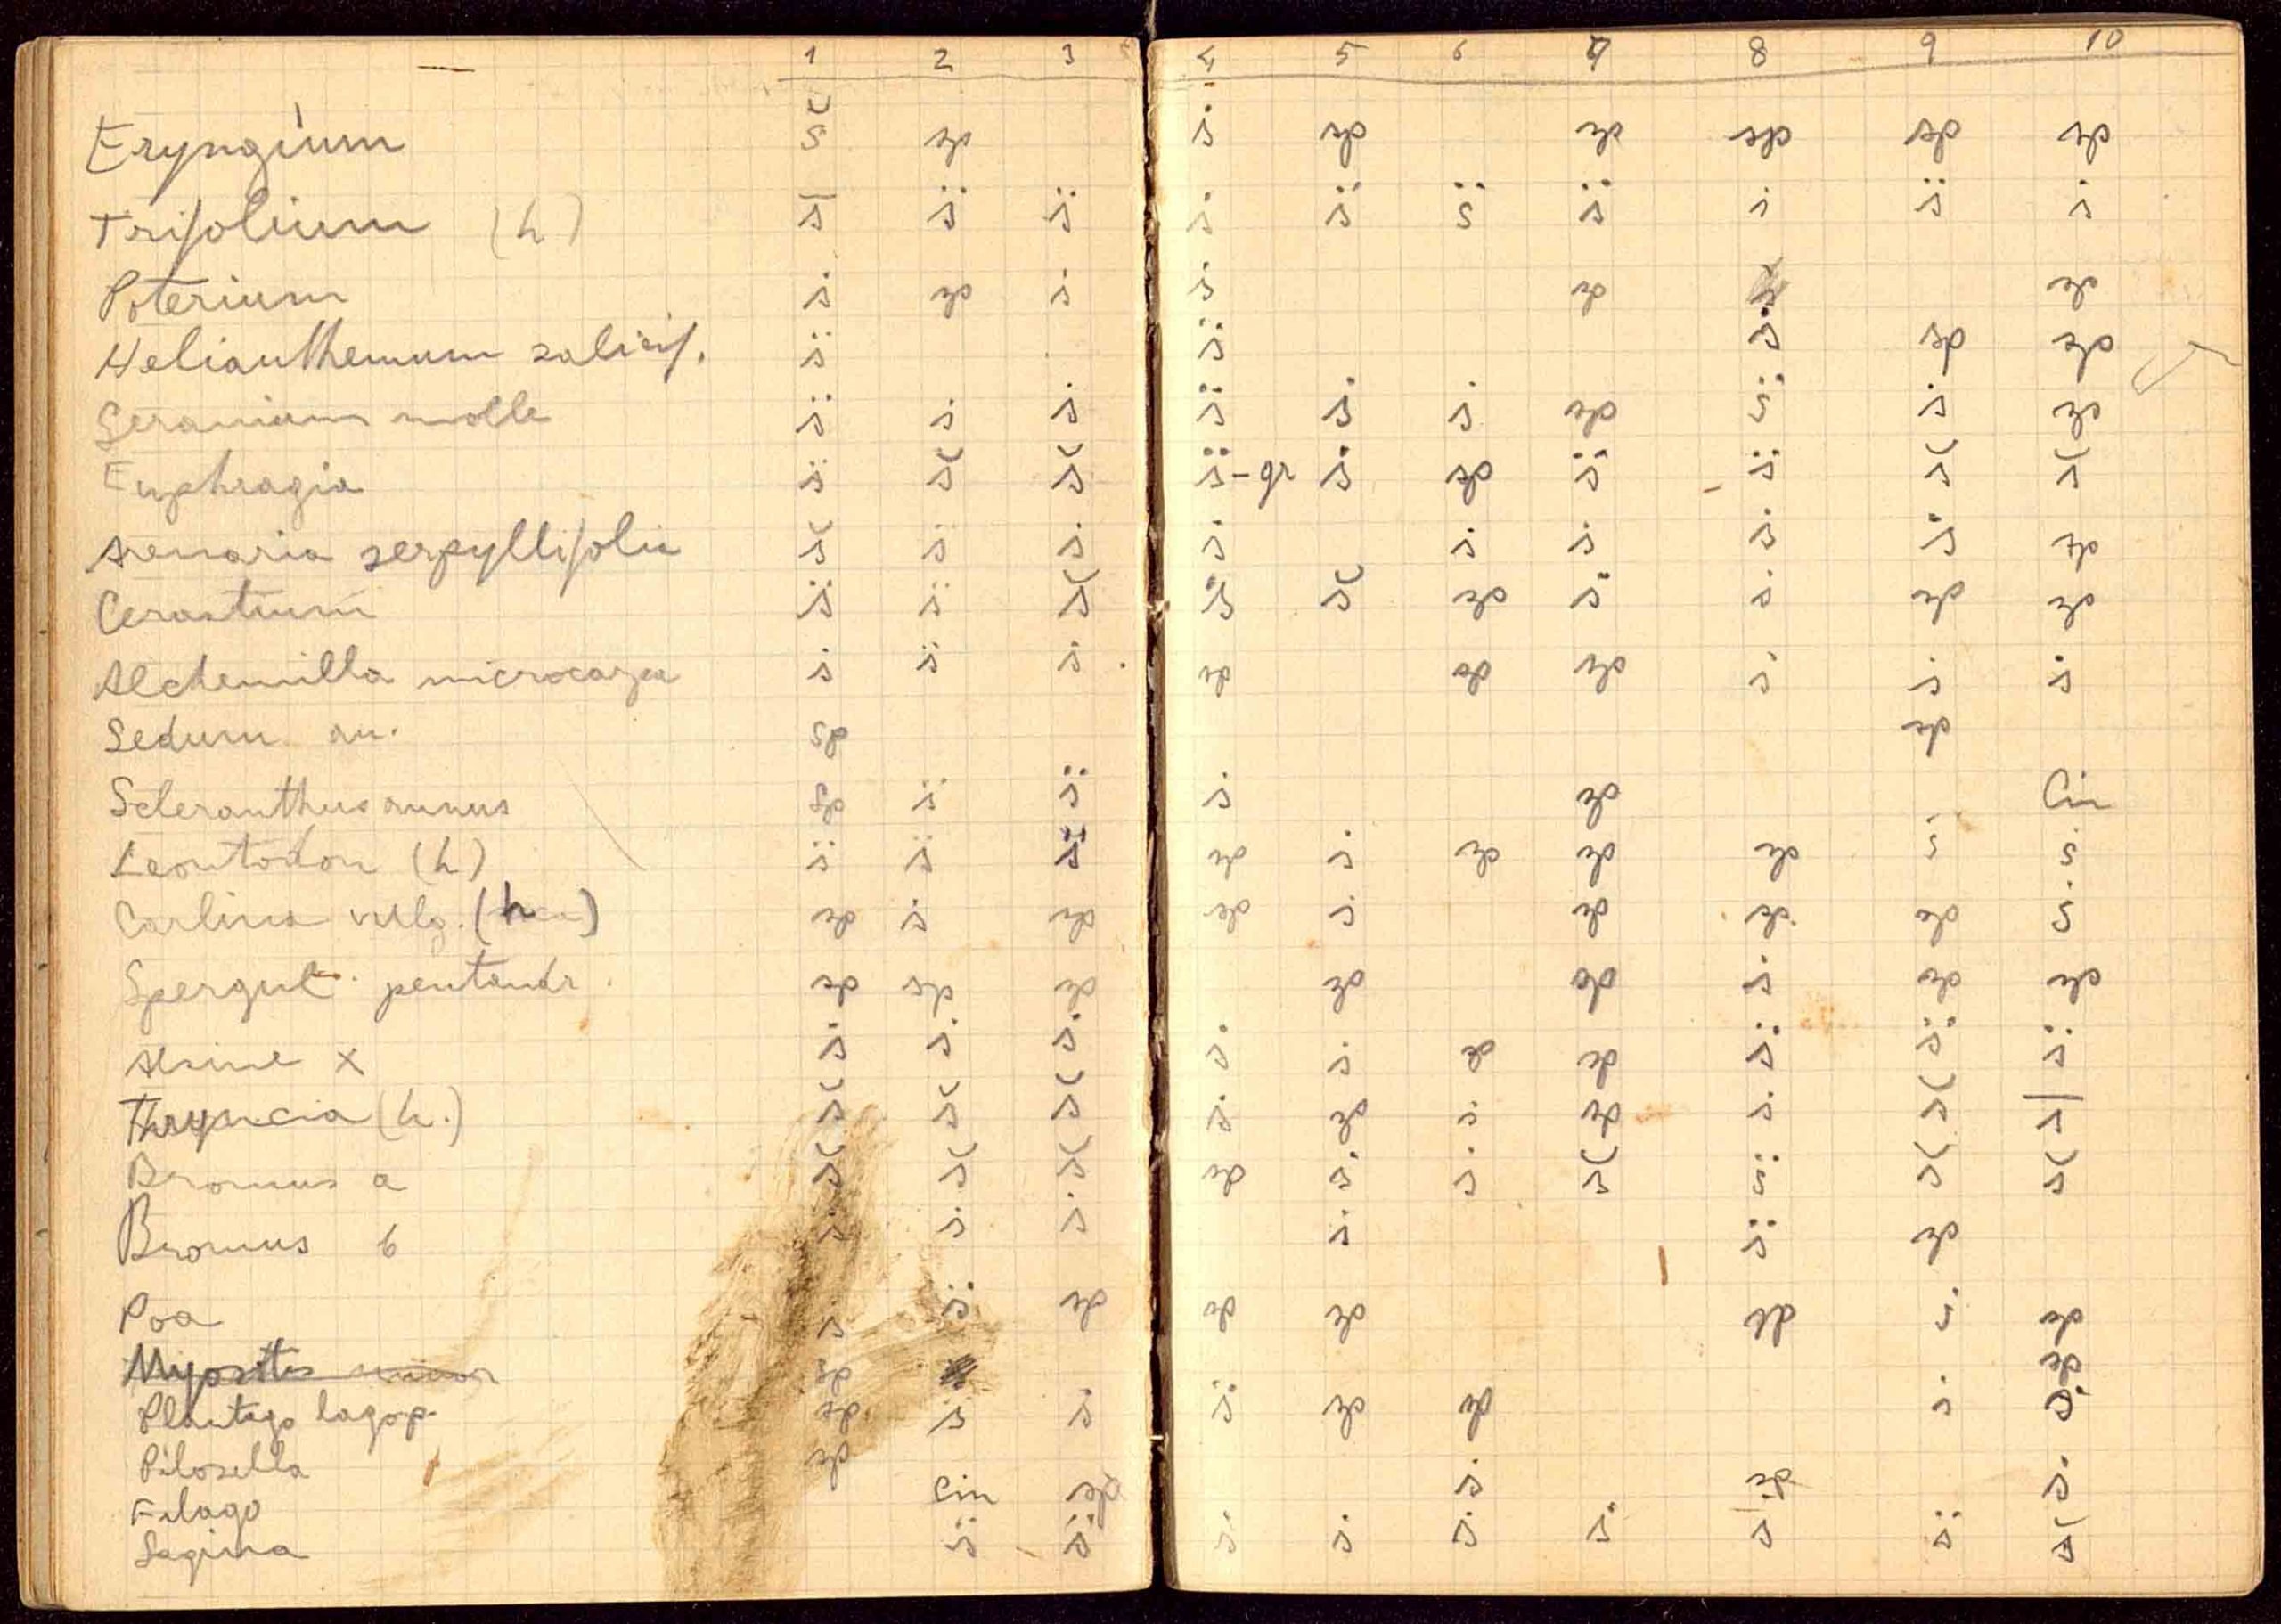 1 2 3 4 5 6 7 8 9 10
Eryngium š sp ṡ sp sp sp sp sp
Trifolium (h) s̄ s̈ s̈ ṡ s̈ s̈ s̈ ṡ s̈ ṡ
Poterium ṡ sp ṡ ṡ sp sp
Helianthemum salicif. s̈ s̈ ṡ sp sp
Geranium molle s̈ ṡ ṡ s̈ ṡ ṡ sp s̈ ṡ sp
Euphragia s̈ s̆ s̆ s̈-gr ṡ sp s̈ s̈ s̆ s̆
Arenaria serpyllifolia s̆ ṡ ṡ ṡ ṡ ṡ ṡ ṡ sp
Cerastium s̈ s̈ s̆ s̈ s̆ sp ṡ ṡ sp sp
Alchemilla microcarpa ṡ s̈ ṡ sp sp sp ṡ ṡ ṡ
Sedum an. sp sp
Scleranthus annus sp s̈ s̈ ṡ sp Cin
Leontodon (h) s̈ s̈ s̈ sp ṡ sp sp sp ṡ ṡ
Carlina vulg. (h) sp ṡ sp sp ṡ sp sp sp ṡ
Spergul. pentandr. sp sp sp sp sp ṡ sp sp
Alsine x ṡ ṡ ṡ ṡ ṡ sp sp s̈ s̈ s̈
Thryncia (h.) s̆ s̆ s̆ ṡ sp ṡ sp ṡ s̆ s̄
Bromus a s̆ s̆ s̆ sp ṡ ṡ s̆ s̈ s̆ s̆
Bromus b ṡ ṡ ṡ ṡ s̈ sp
Poa ṡ s̈ sp sp sp sp ṡ sp
Myosotis minor sp sp
Plantago lagop. sp ṡ ṡ s̈ sp sp ṡ ṡ
Pilosella sp ṡ sp ṡ
Filago Cin sp
Sagina s̈ s̈ ṡ ṡ ṡ ṡ s̄ s̈ s̆